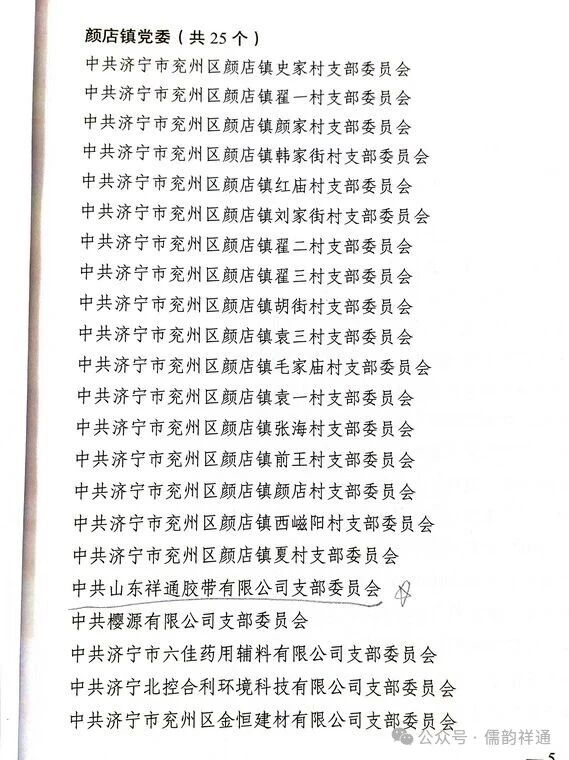 颜店镇党委（共25个）
中共济宁市兖州区颜店镇史家村支部委员会
中共济宁市兖州区颜店镇翟一村支部委员会
中共济宁市兖州区颜店镇颜家村支部委员会
中共济宁市兖州区颜店镇韩家街村支部委员会
中共济宁市兖州区颜店镇红庙村支部委员会
中共济宁市兖州区颜店镇刘家街村支部委员会
中共济宁市兖州区颜店镇翟二村支部委员会
中共济宁市兖州区颜店镇翟三村支部委员会
中共济宁市兖州区颜店镇胡街村支部委员会
中共济宁市兖州区颜店镇袁三村支部委员会
中共济宁市兖州区颜店镇毛家庙村支部委员会
中共济宁市兖州区颜店镇袁一村支部委员会
中共济宁市兖州区颜店镇张海村支部委员会
中共济宁市兖州区颜店镇前王村支部委员会
中共济宁市兖州区颜店镇颜店村支部委员会
中共济宁市兖州区颜店镇西嵫阳村支部委员会
中共济宁市兖州区颜店镇夏村支部委员会
中共山东祥通胶带有限公司支部委员会
中共樱源有限公司支部委员会
中共济宁市六佳药用辅料有限公司支部委员会
中共济宁北控合利环境科技有限公司支部委员会
中共济宁市兖州区金恒建材有限公司支部委员会
公众号·儒韵祥通
— 5